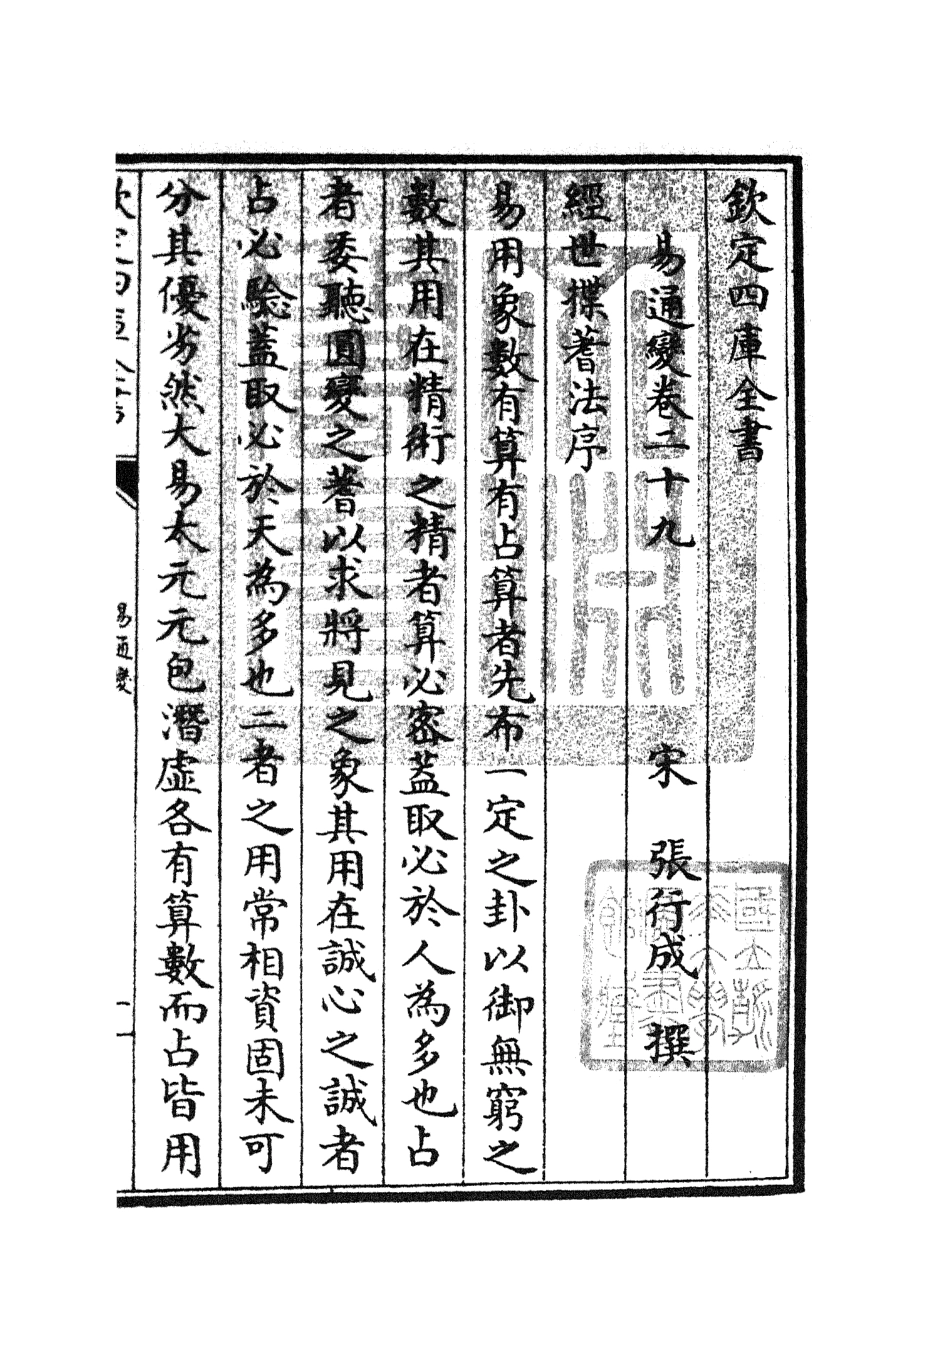 欽定四庫全書
易通變卷二十九 宋 張行成 撰
經世揲蓍法序
易用象數有算有占算者先布一定之卦以御無窮之
數其用在精術之精者算必密蓋取必於人為多也占
者委聽圓變之蓍以求將見之象其用在誠心之誠者
占必驗蓋取必於天為多也二者之用常相資固未可
分其優劣然大易太元元包潛虛各有算數而占皆用
易通變